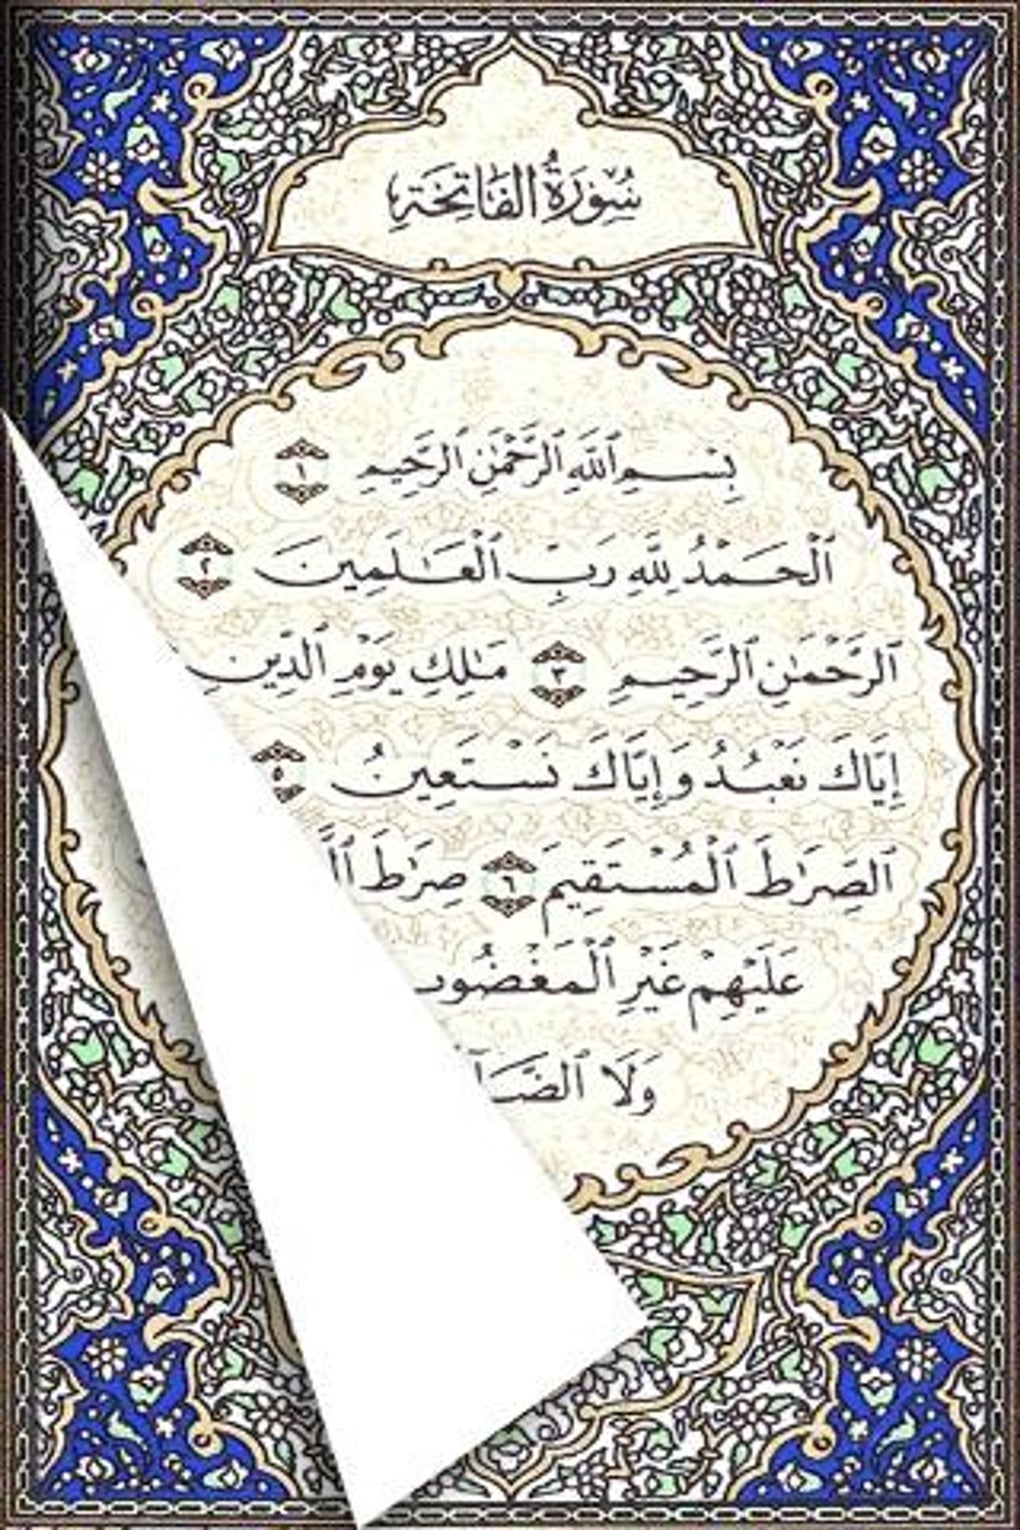 سُورَةُ الفَاتِحَةِ
بِسْمِ ٱللَّهِ ٱلرَّحْمَٰنِ ٱلرَّحِيمِ ١
ٱلْحَمْدُ لِلَّهِ رَبِّ ٱلْعَٰلَمِينَ ٢
ٱلرَّحْمَٰنِ ٱلرَّحِيمِ ٣ مَٰلِكِ يَوْمِ ٱلدِّينِ
إِيَّاكَ نَعْبُدُ وَإِيَّاكَ نَسْتَعِينُ ٥
ٱلصِّرَٰطَ ٱلْمُسْتَقِيمَ ٦ صِرَٰطَ
عَلَيْهِمْ غَيْرِ ٱلْمَغْضُوب
وَلَا